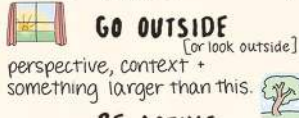 GO OUTSIDE
[or look outside]
perspective, context +
something larger than this.